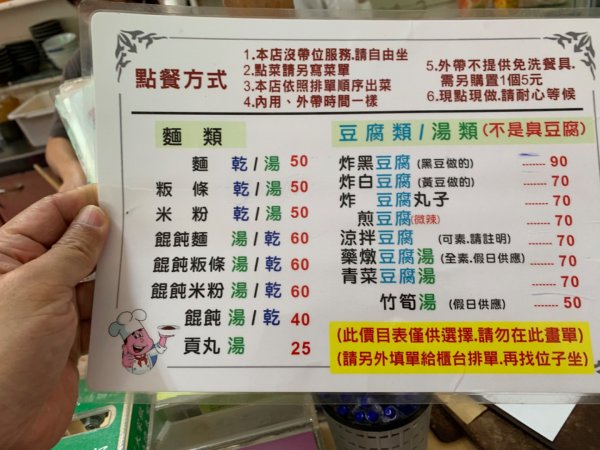 點餐方式
1.本店沒帶位服務.請自由坐
2.點菜請另寫菜單
3.本店依照排單順序出菜
4.內用、外帶時間一樣
5.外帶不提供免洗餐具.
需另購置1個5元
6.現點現做.請耐心等候
麵 類
麵 乾/湯 50
粄條 乾/湯 50
米粉 乾/湯 50
餛飩麵 湯/乾 60
餛飩粄條 湯/乾 60
餛飩米粉 湯/乾 60
餛飩 湯/乾 40
貢丸 湯 25
豆腐類/湯類(不是臭豆腐)
炸黑豆腐 (黑豆做的) ------- 90
炸白豆腐 (黃豆做的) ------- 70
炸 豆腐丸子 ------- 70
煎豆腐(微辣) ------- 70
涼拌豆腐 (可素.請註明) ------- 70
藥燉豆腐湯 (全素.假日供應) ------- 70
青菜豆腐湯 ------- 70
竹筍湯 (假日供應) ------- 50
(此價目表僅供選擇.請勿在此畫單)
(請另外填單給櫃台排單.再找位子坐)